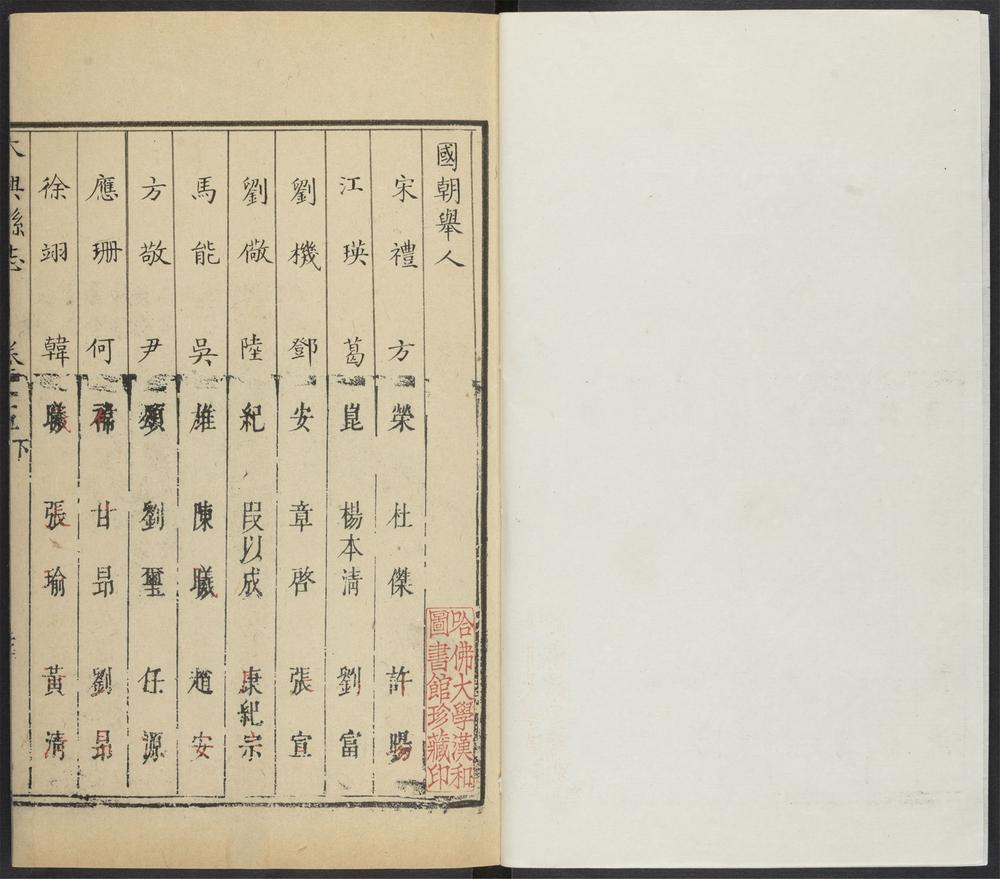 國朝舉人
宋禮 方榮 杜傑 許暘
江瑛 葛崑 楊本清 劉富
劉機 鄧安 章啓 張宣
劉儆 陸紀 段以成 康紀宗
馬能 吳雄 陳曦 趙安
方敬 尹頌 劉璽 任源
應珊 何 甘昂 劉昂
徐翊 韓 張瑜 黃清
大興縣志 卷 下
哈佛大學漢和
圖書館珍藏印